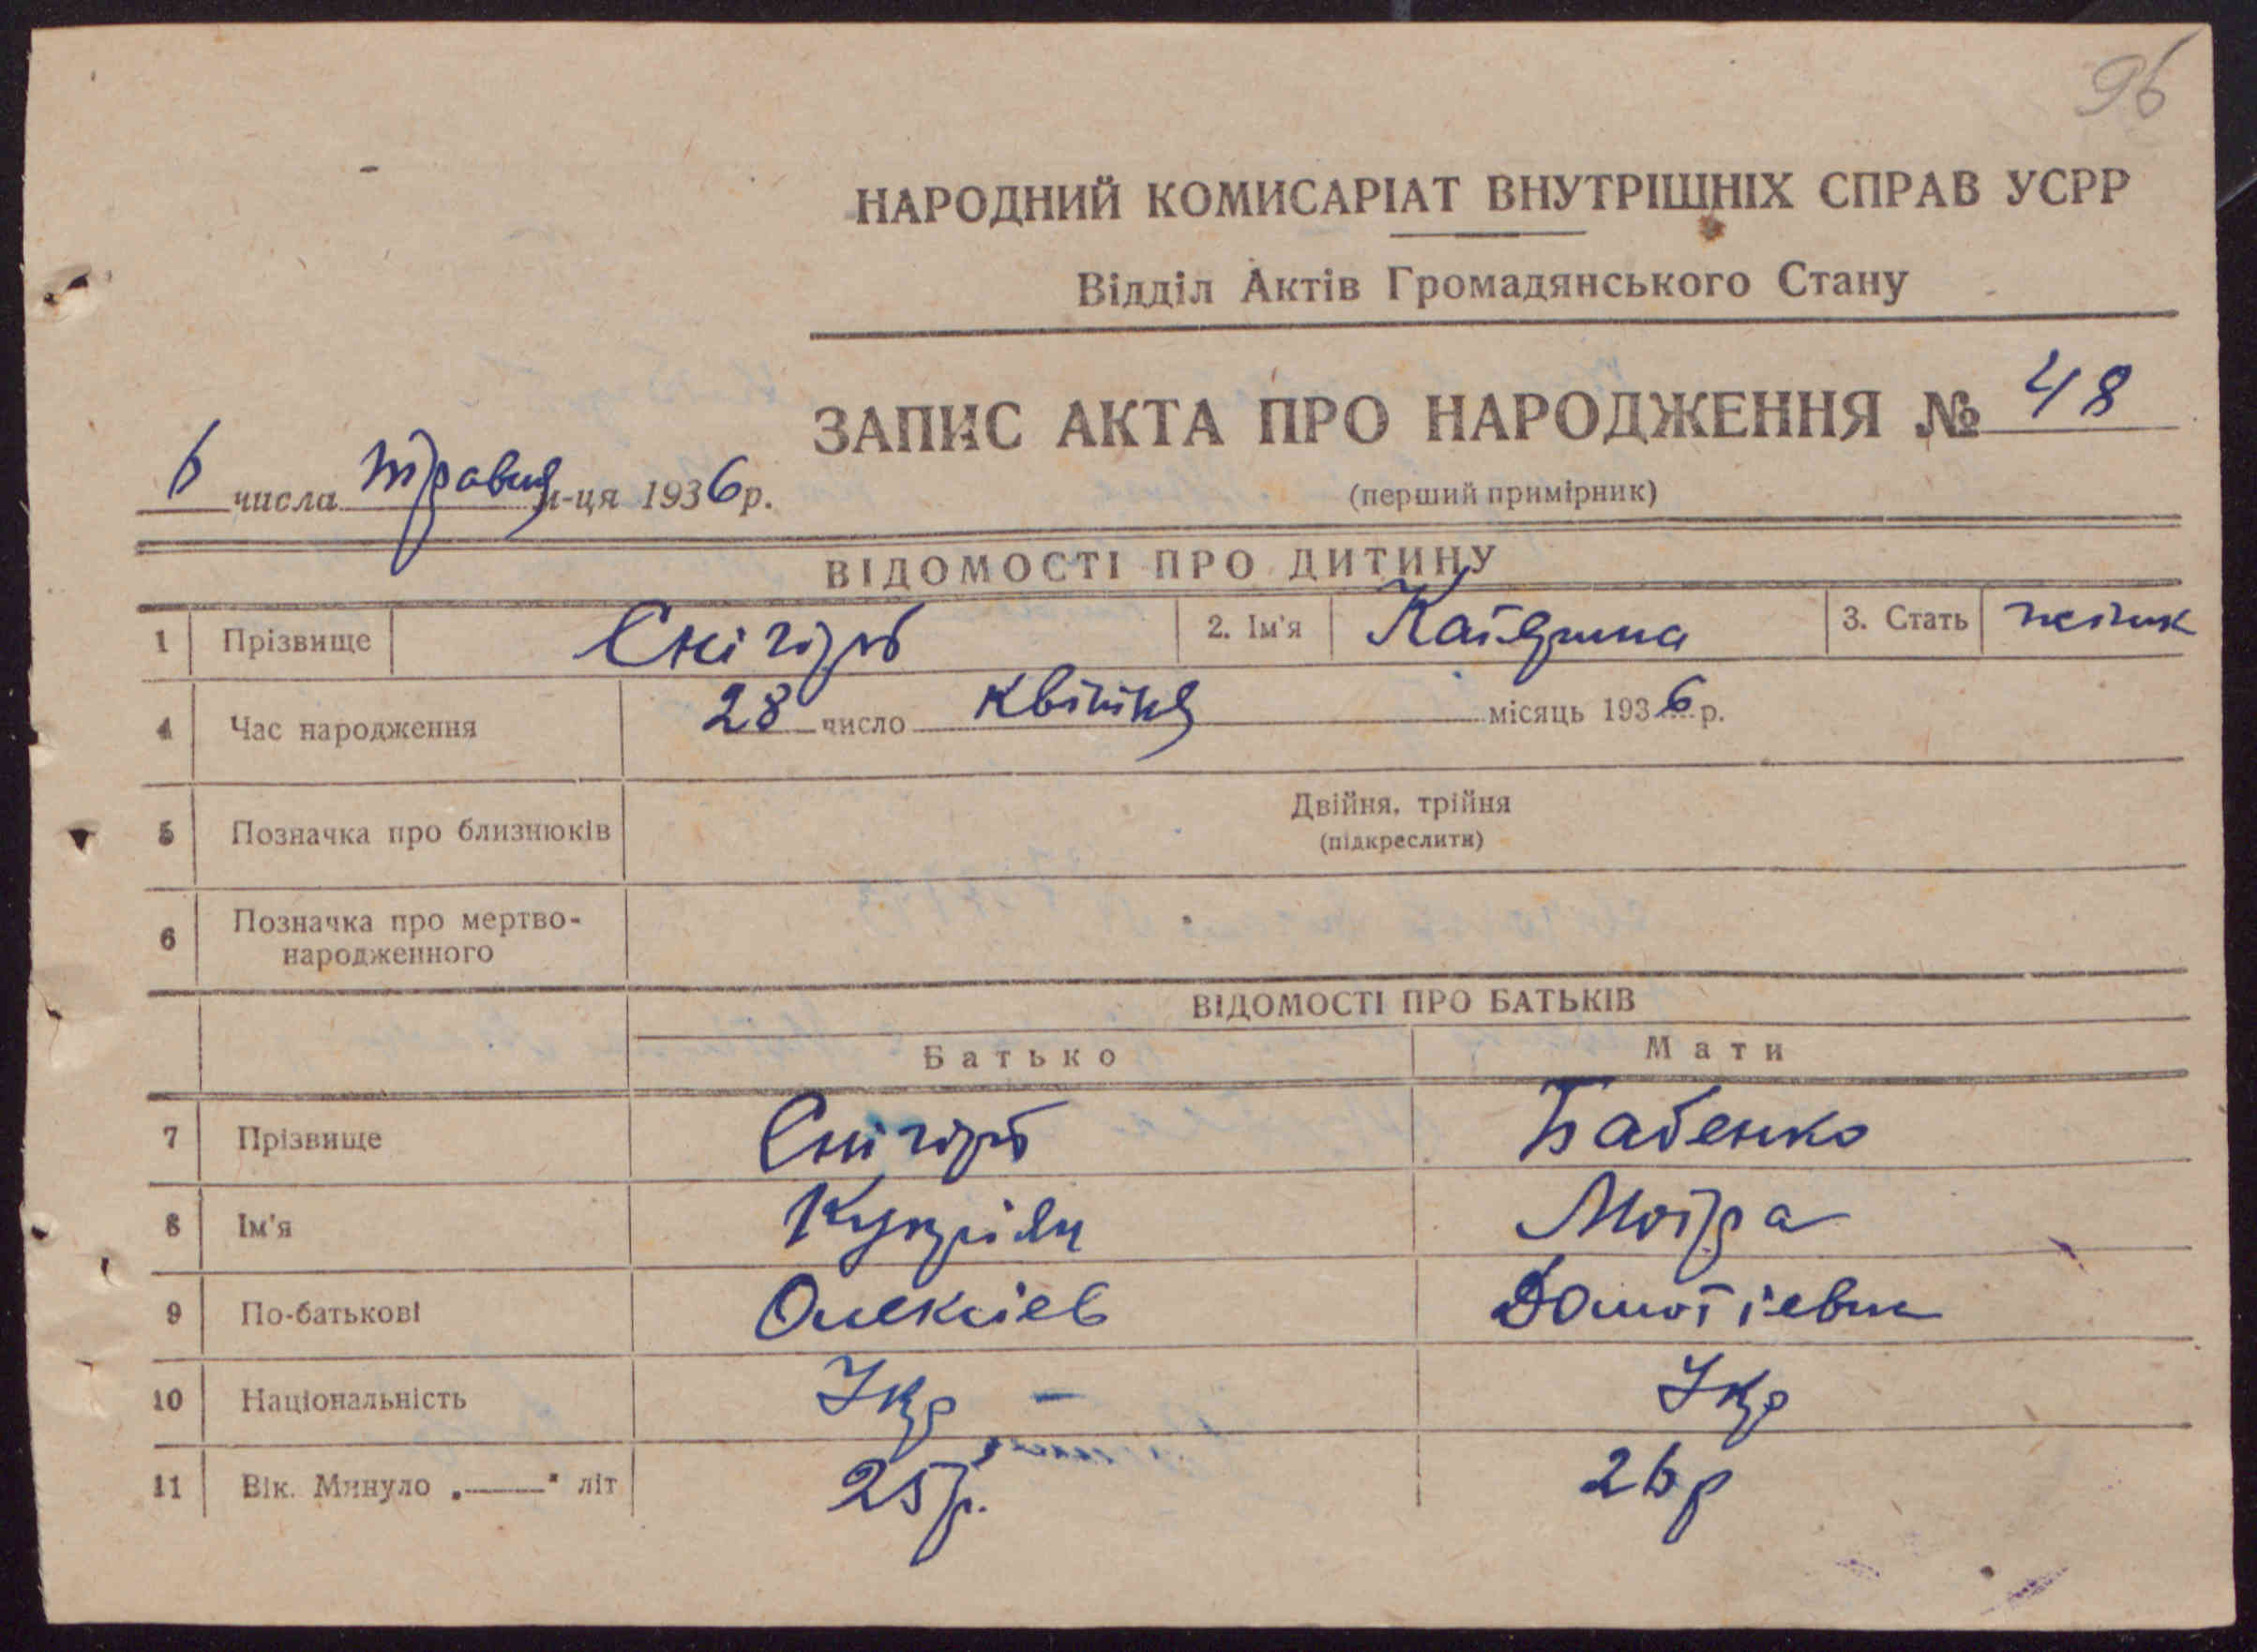 96
НАРОДНИЙ КОМИСАРІАТ ВНУТРІШНІХ СПРАВ УСРР
Відділ Актів Громадянського Стану
ЗАПИС АКТА ПРО НАРОДЖЕННЯ № 48
6 числа травня м-ця 1936 р.
(перший примірник)
ВІДОМОСТІ ПРО ДИТИНУ
1 Прізвище Снігірь 2. Ім'я Катерина 3. Стать жіночк
4 Час народження 28 число квітня місяць 1936 р.
5 Позначка про близнюків Двійня, трійня
(підкреслити)
6 Позначка про мертво-
народженного
ВІДОМОСТІ ПРО БАТЬКІВ
Батько Мати
7 Прізвище Снігірь Бабенко
8 Ім'я Купріян Мотра
9 По-батькові Олексіев
10 Національність Укр — Укр
11 Вік. Минуло „——" літ 25 р. 26 р